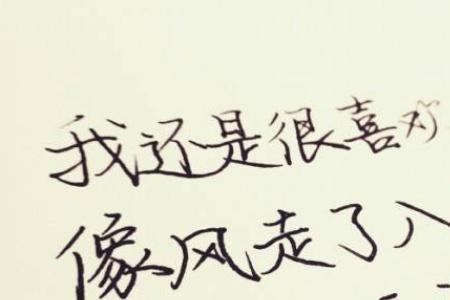 我还是很喜欢
像风走了八